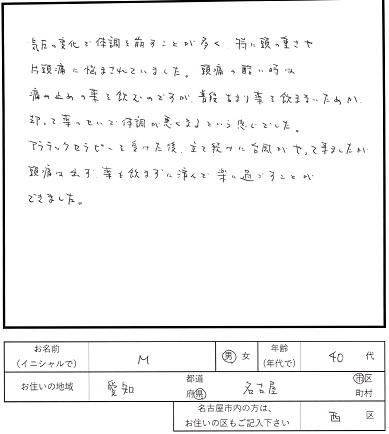 気圧の変化で体調を崩すことが多く、特に頭の重さや
片頭痛に悩まされていました。頭痛の酷い時は
痛み止めの薬を飲むのですが、普段あまり薬を飲まないためか、
却って薬のせいで体調が悪くなるという感じでした。
アトラックセラピーを受けた後、立て続けに台風がやって来ましたが
頭痛は出ず、薬も飲まずに済んで楽に過ごすことが
できました。
お名前 (イニシャルで) M 男 女 年齢 (年代で) 40 代
お住いの地域 愛知 都道府県 名古屋 市区町村
名古屋市内の方は、お住いの区もご記入下さい 西 区